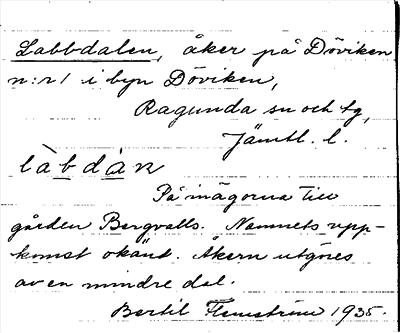 Labbdalen, åker på Döviken
n:r 1 i byn Döviken,
Ragunda sn och tg,
Jämtl. l.
làbdàn
På inägorna till
gården Bergvalls. Namnets upp-
komst okänd. Åkern utgöres
av en mindre dal.
Bertil 1935.